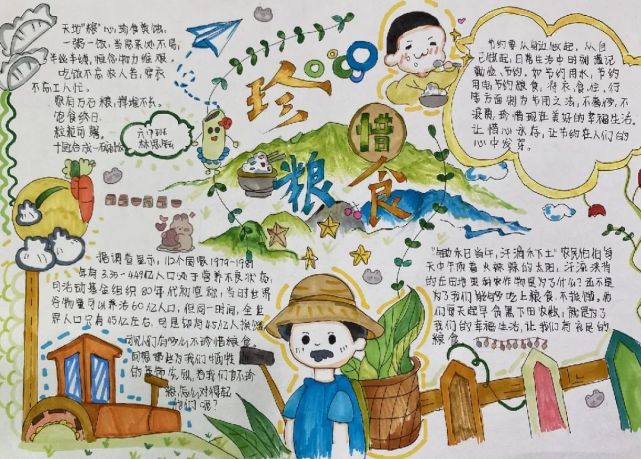 珍惜粮食
天地"粮"心,珍食莫蚀。
一粥一饭,当思来处不易,
半丝半缕,恒念物力维艰。
吃饭不忘农人苦,穿衣
不忘工人忙。
家有万石粮,挥霍不久。
饱食终日
粒粒可贵。
六(7)班
节约要从身边做起,从自
己做起,日常生活中时刻谨记
勤俭节约。如节约用水,节约
用电节约粮食,将衣、食、住、行
等方面例为节用之法,不奢侈,不
浪费,珍惜现在美好的幸福生活。
让惜心永存,让节约在人们的
心中发芽。
据调查显示,110个国家1979-1981
年有3.35-4.49亿人口处于营养不良状态
司活动基金组织80年代初宣称,当时世界
谷物量可以养活60亿人口,但同一时间,全世
界人口只有45亿左右。可是却有4.5亿人挨饿
可见人们有多么不珍惜粮食。
回想
为我们牺牲
的英雄
为我们
怎么对得起
他们呢?
锄禾日当午,汗滴禾下土"农民伯伯每
天中午顶着火辣辣的太阳,汗流浃背
的在田地里耕农作物是为了什么?还不是
为了我们能够吃上粮食,不挨饿,而
他们每天起早贪黑下田农耕,就是为了
我们的幸福生活,让我们有良足的
粮食